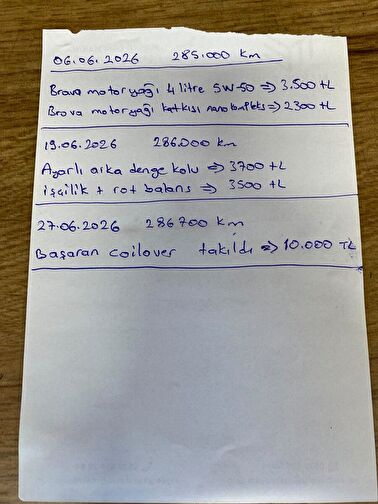 06.06.2026 285.000 km
Brava motor yağı 4 litre 5W-50 => 3.500 TL
Brova motor yağı katkısı nano kompleks => 2300 TL
19.06.2026 286.000 km
Ayarlı arka denge kolu => 3700 TL
işçilik + rot balans => 3500 TL
27.06.2026 286700 km
Başaran coilover takıldı => 10.000 TL